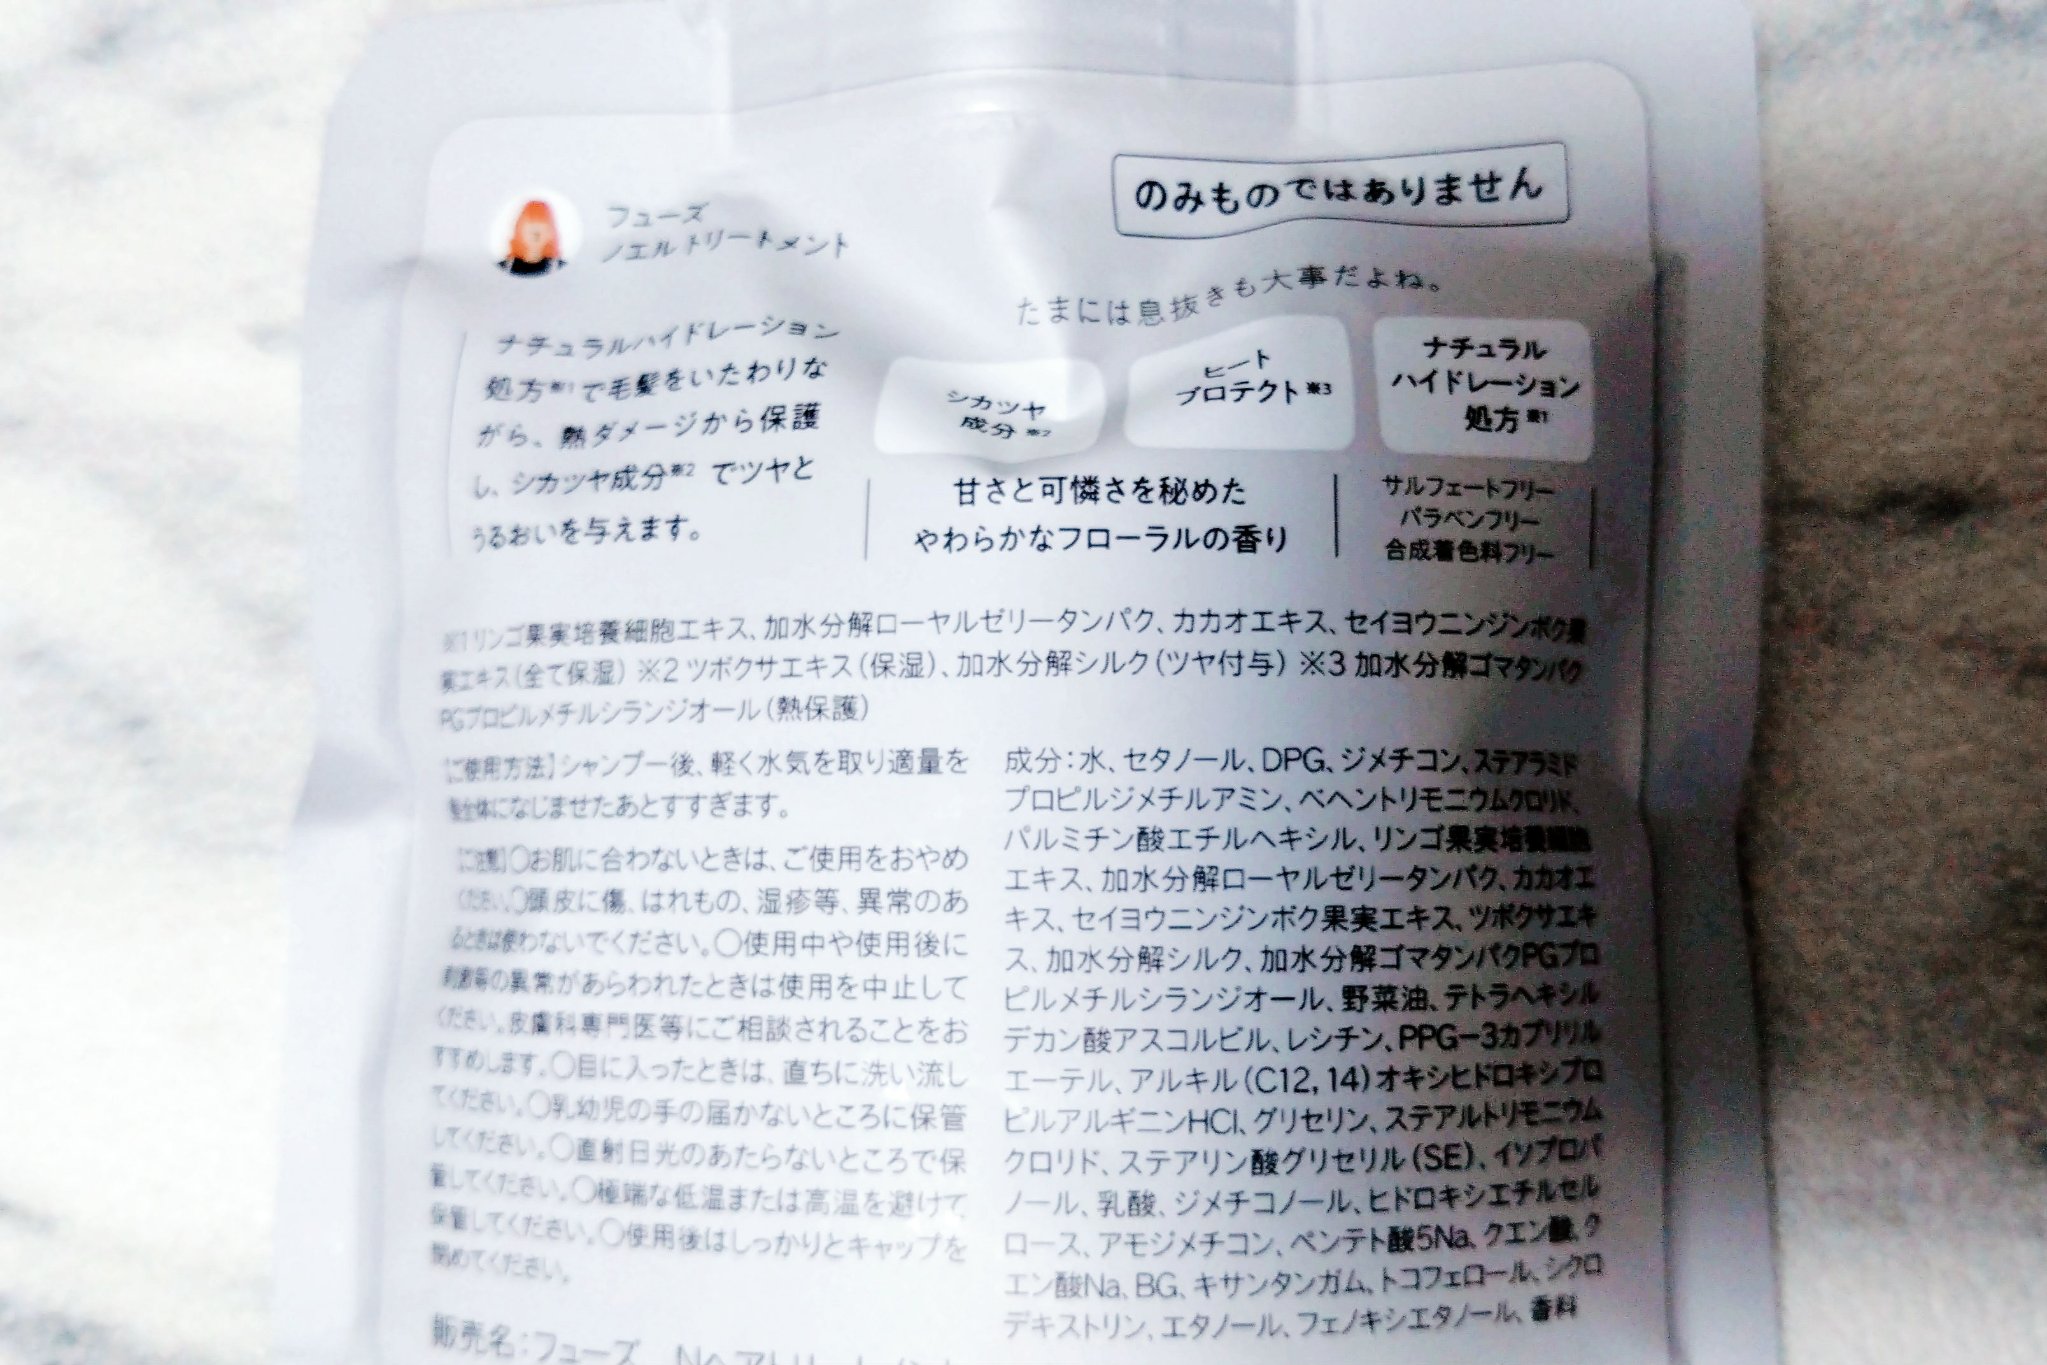 フューズ
ノエルトリートメント
のみものではありません
たまには息抜きも大事だよね。
ナチュラルハイドレーション
処方※1で毛髪をいたわりな
がら、熱ダメージから保護
し、シカツヤ成分※2 でツヤと
うるおいを与えます。
シカツヤ
成分 ※2
ヒート
プロテクト※3
ナチュラル
ハイドレーション
処方※1
甘さと可憐さを秘めた
やわらかなフローラルの香り
サルフェートフリー
パラベンフリー
合成着色料フリー
※1 リンゴ果実培養細胞エキス、加水分解ローヤルゼリータンパク、カカオエキス、セイヨウニンジンボク果
実エキス(全て保湿) ※2 ツボクサエキス(保湿)、加水分解シルク(ツヤ付与) ※3 加水分解ゴマタンパク
PGプロピルメチルシランジオール(熱保護)
【ご使用方法】シャンプー後、軽く水気を取り適量を
髪全体になじませたあとすすぎます。
【ご注意】○お肌に合わないときは、ご使用をおやめ
ください。○頭皮に傷、はれもの、湿疹等、異常のあ
るときは使わないでください。○使用中や使用後に
刺激等の異常があらわれたときは使用を中止して
ください。皮膚科専門医等にご相談されることをお
すすめします。○目に入ったときは、直ちに洗い流し
てください。○乳幼児の手の届かないところに保管
してください。○直射日光のあたらないところで保
管してください。○極端な低温または高温を避けて
保管してください。○使用後はしっかりとキャップを
閉めてください。
販売名:フューズ Nヘアトリートメント
成分:水、セタノール、DPG、ジメチコン、ステアラミド
プロピルジメチルアミン、ベヘントリモニウムクロリド、
パルミチン酸エチルヘキシル、リンゴ果実培養細胞
エキス、加水分解ローヤルゼリータンパク、カカオエ
キス、セイヨウニンジンボク果実エキス、ツボクサエキ
ス、加水分解シルク、加水分解ゴマタンパクPGプロ
ピルメチルシランジオール、野菜油、テトラヘキシル
デカン酸アスコルビル、レシチン、PPG-3カプリリル
エーテル、アルキル(C12,14)オキシヒドロキシプロ
ピルアルギニンHCl、グリセリン、ステアルトリモニウム
クロリド、ステアリン酸グリセリル(SE)、イソプロパ
ノール、乳酸、ジメチコノール、ヒドロキシエチルセル
ロース、アモジメチコン、ペンテト酸5Na、クエン酸、ク
エン酸Na、BG、キサンタンガム、トコフェロール、シクロ
デキストリン、エタノール、フェノキシエタノール、香料